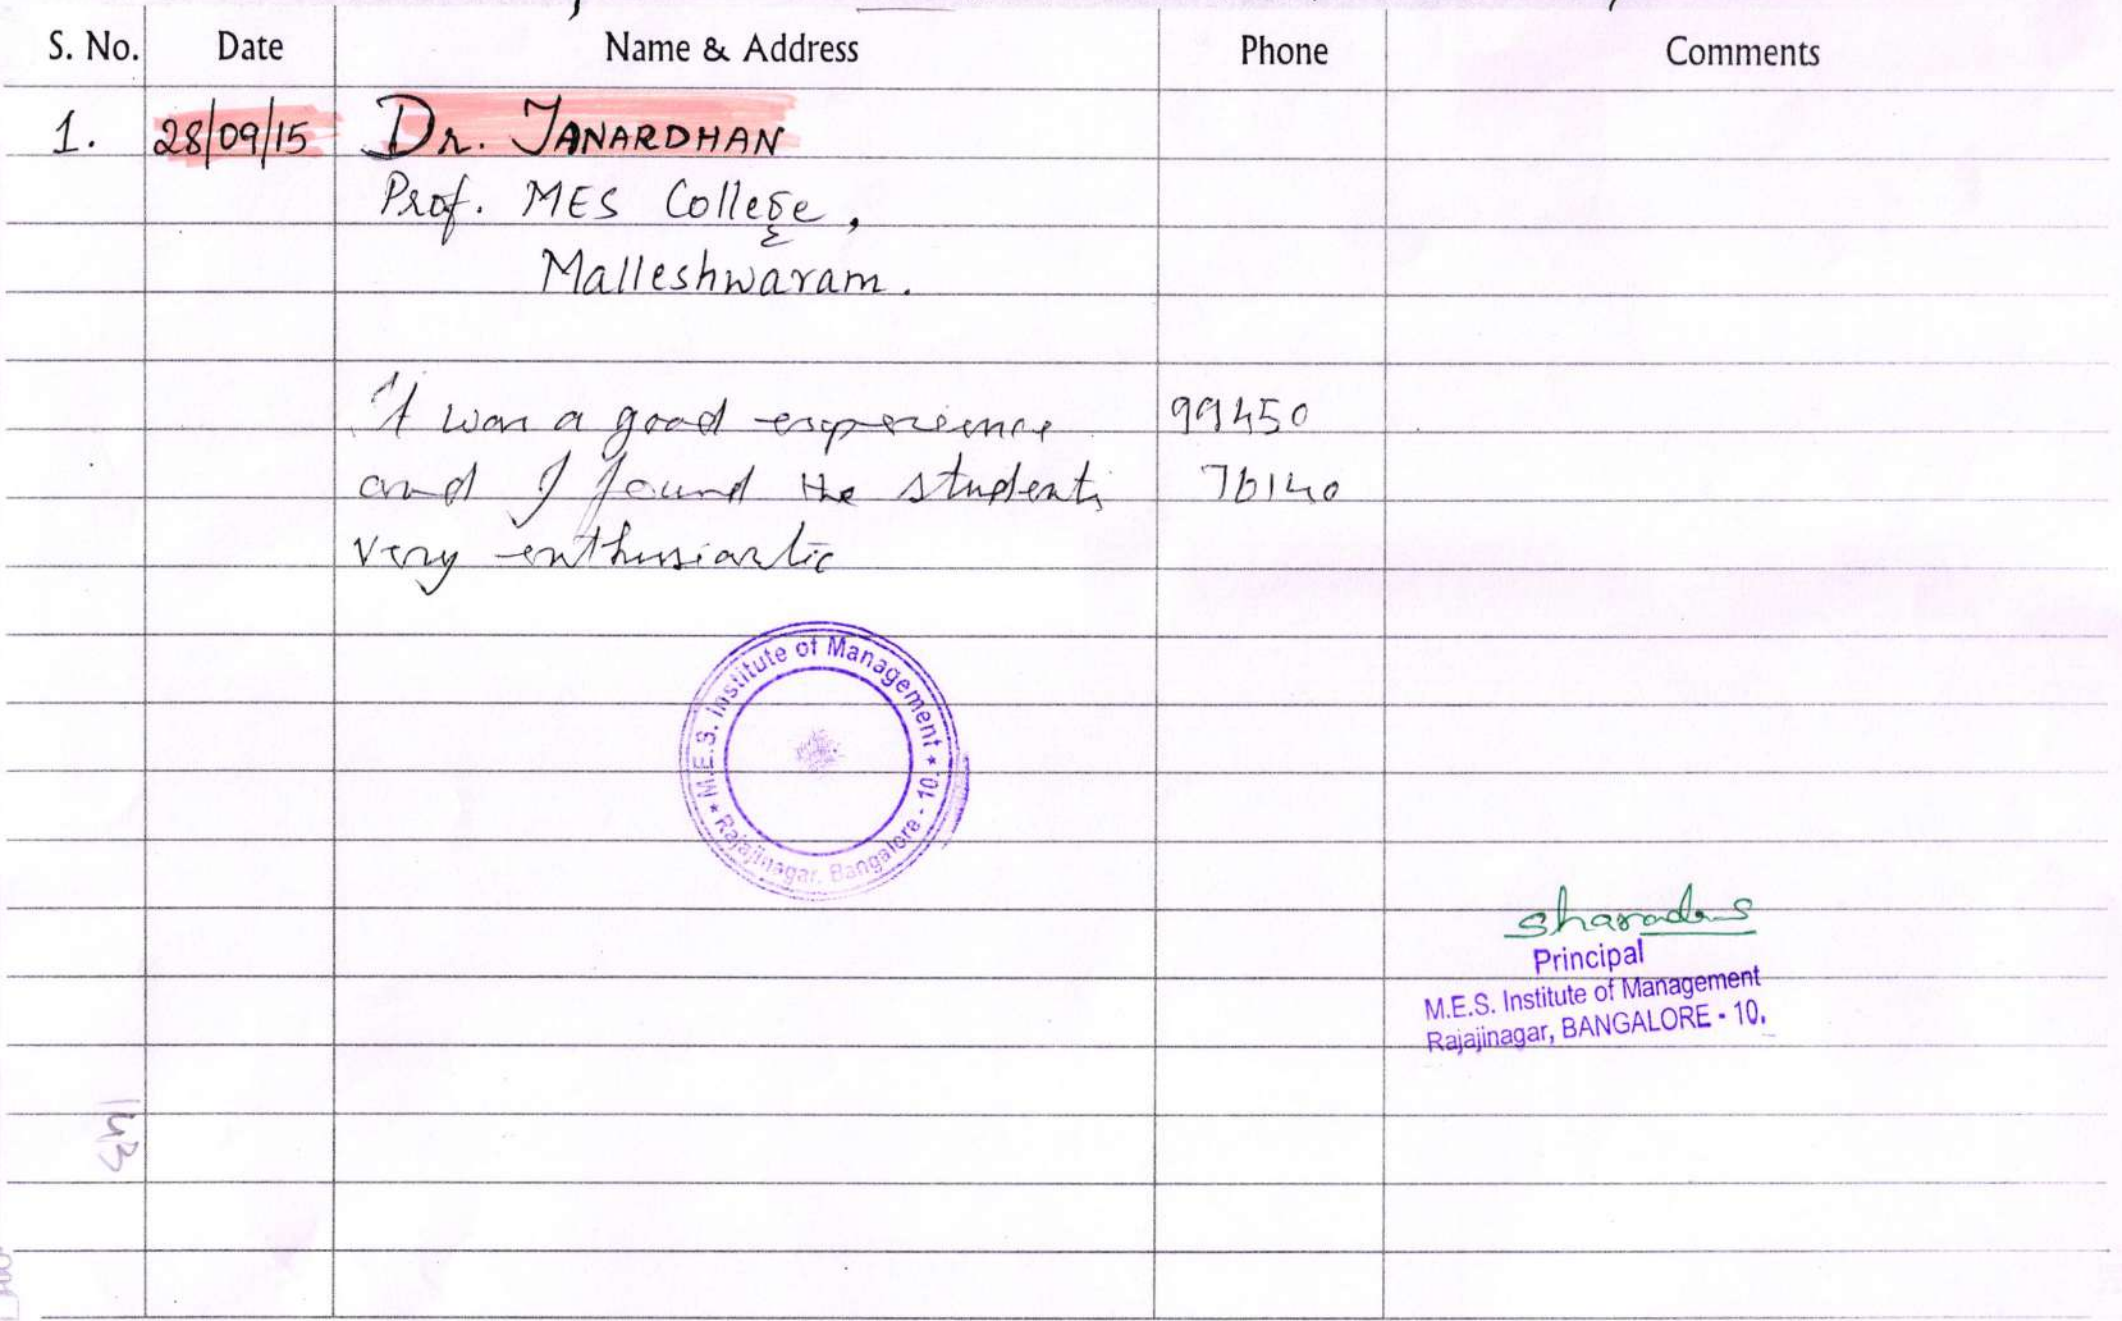 S. No. Date Name & Address Phone Comments
1. 28/09/15 Dr. JANARDHAN
Prof. MES College,
Malleshwaram.
It was a good experience 99450
and I found the students 76140
very enthusiastic
* M.E.S. Institute of Management *
Rajajinagar, Bangalore - 10.
Principal
M.E.S. Institute of Management
Rajajinagar, BANGALORE - 10.